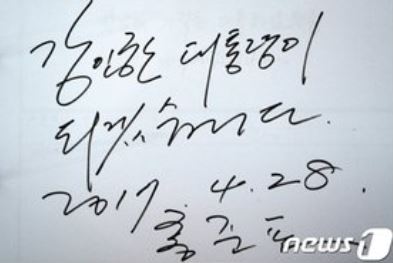 강인한 대통령이
되겠습니다.
2017 4.28.
홍준표
news1